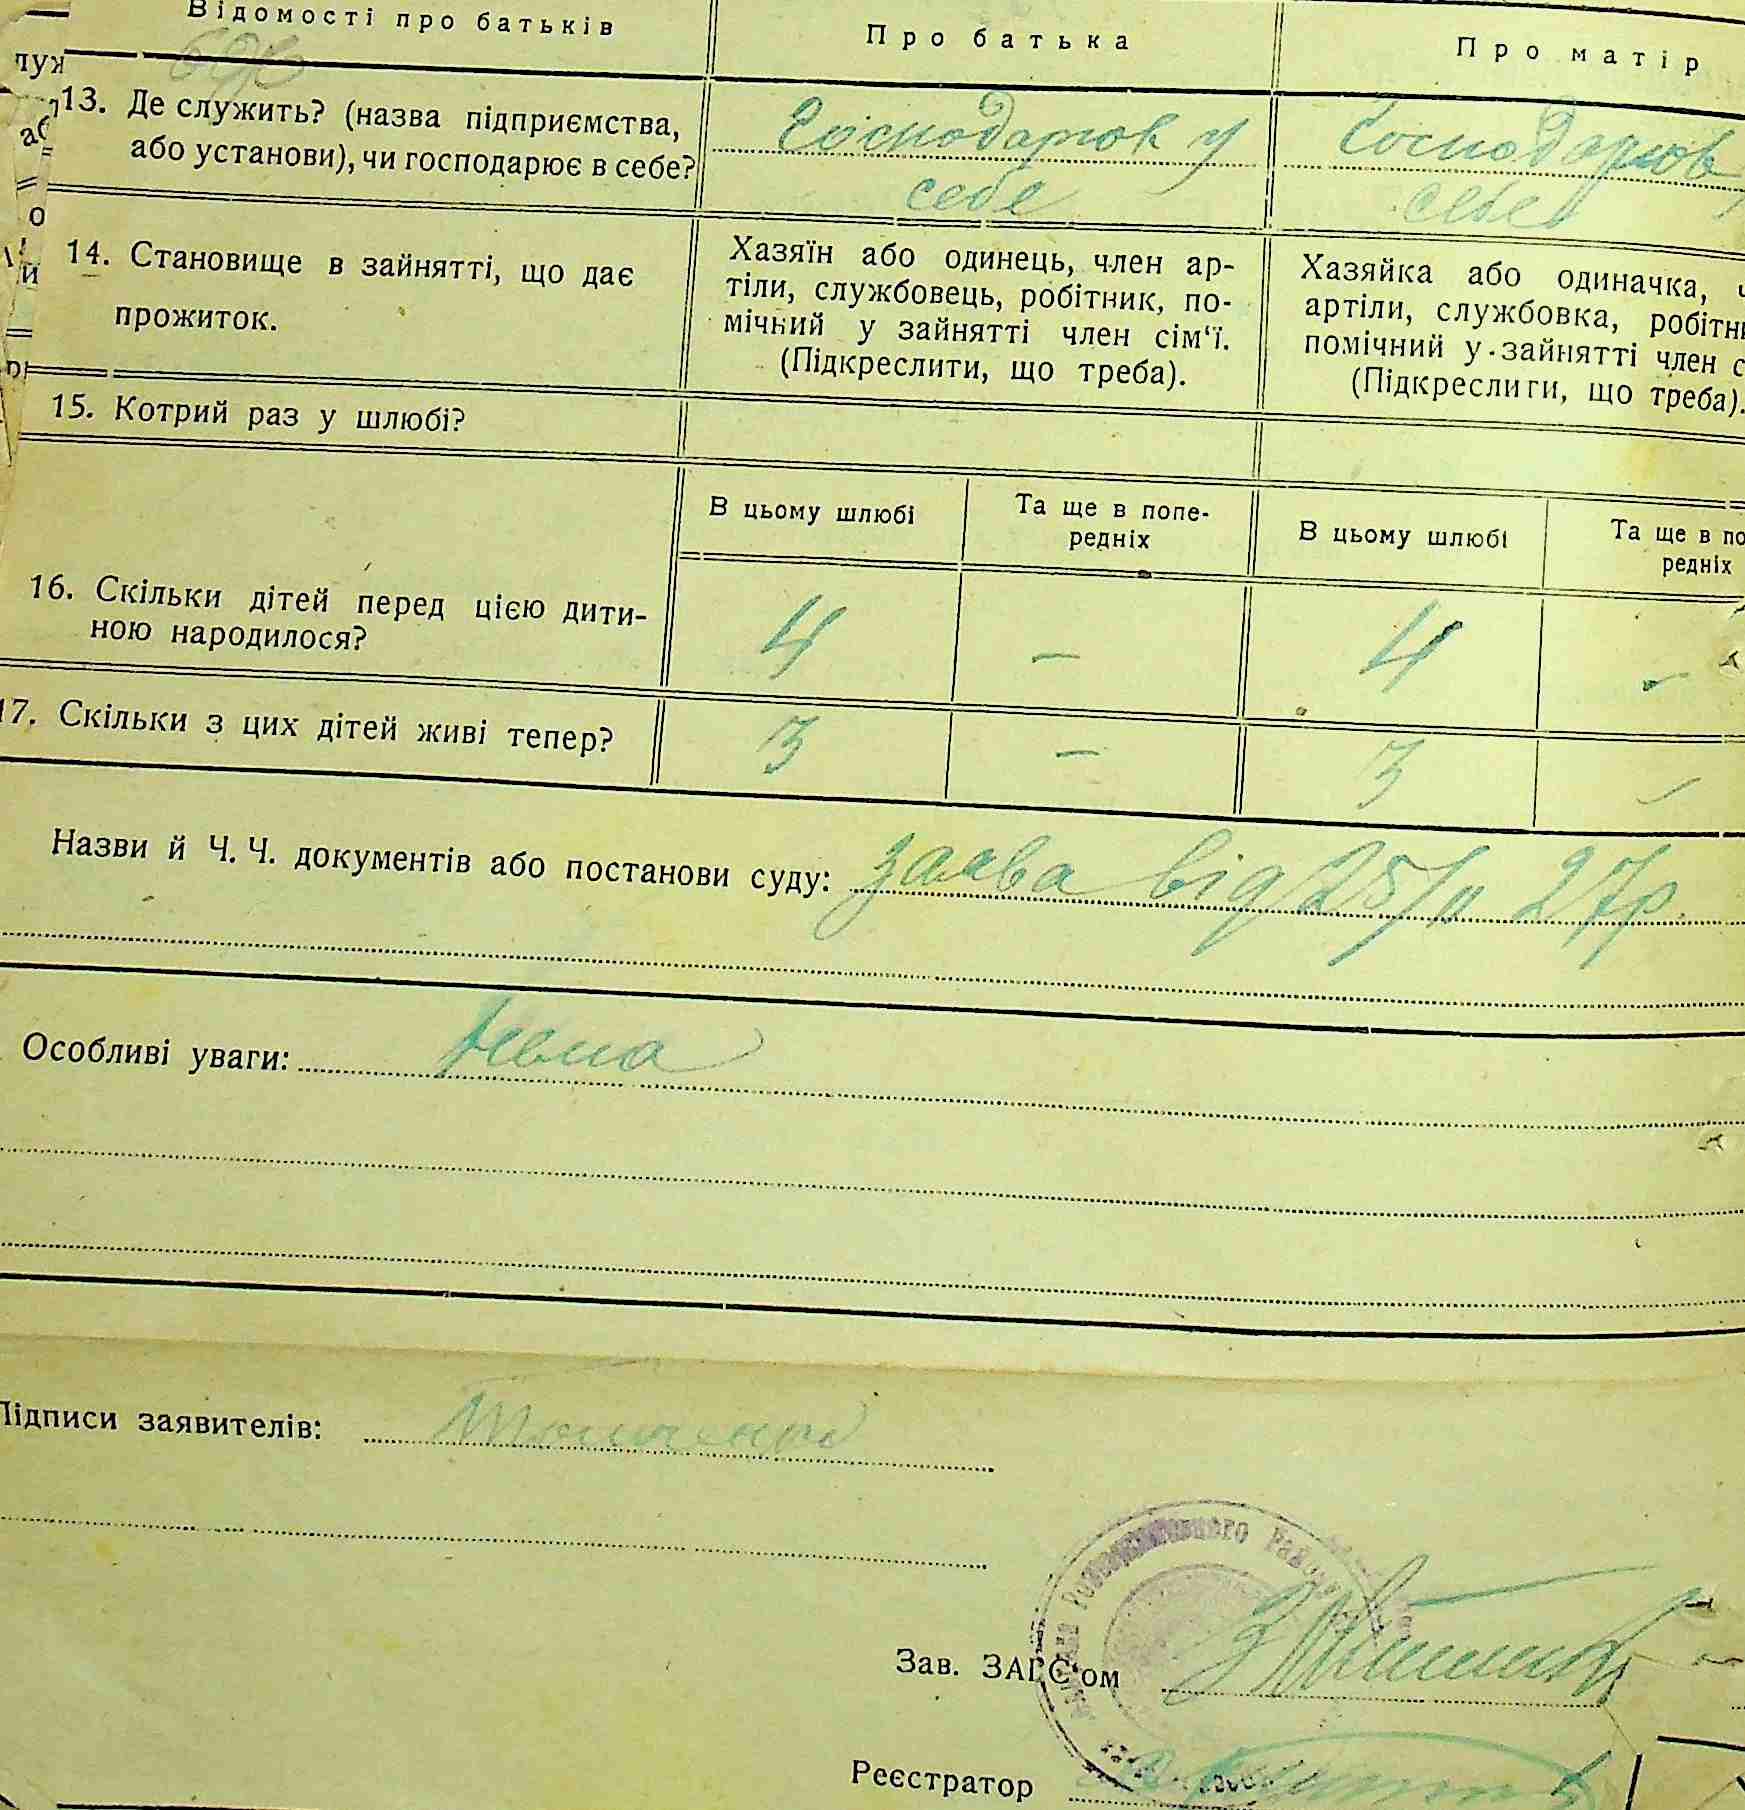 Відомості про батьків
Про батька
Про матір
13. Де служить? (назва підприємства,
або установи), чи господарює в себе?
Господарюв у
себе
Господарюв
себе
14. Становище в зайнятті, що дає
прожиток.
Хазяїн або одинець, член ар-
тіли, службовець, робітник, по-
мічний у зайнятті член сім‘ї.
(Підкреслити, що треба).
Хазяйка або одиначка, ч
артіли, службовка, робітни
помічний у зайнятті член с
(Підкреслити, що треба).
15. Котрий раз у шлюбі?
В цьому шлюбі
Та ще в попе-
редніх
В цьому шлюбі
Та ще в по
редніх
16. Скільки дітей перед цією дити-
ною народилося?
4 – 4 –
17. Скільки з цих дітей живі тепер?
3 – 3 –
Назви й Ч. Ч. документів або постанови суду: заява від 25/II 27р.
Особливі уваги: Нема
Підписи заявителів:
Зав. ЗАГС‘ом
Реєстратор